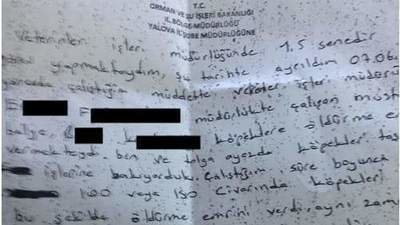 T.C.
ORMAN VE SU İŞLERİ BAKANLIĞI
BÖLGE MÜDÜRLÜĞÜ
YALOVA İL ŞUBE MÜDÜRLÜĞÜNE
Veteriner işleri müdürlüğünde 1,5 senedir
yapmaktaydım, şu tarihte ayrıldım 07.06
çalıştığım müddette veteriner işleri müdürü
E F müdürlükte çalışan
köpeklere öldürme
vermekteydi. ben ve tolga ayazda köpekler
işlerine bakıyorduk. Çalıştığım süre boyunca
100 veya 150 Civarında köpekleri
bu şekilde öldürme emrini verdir, aynı